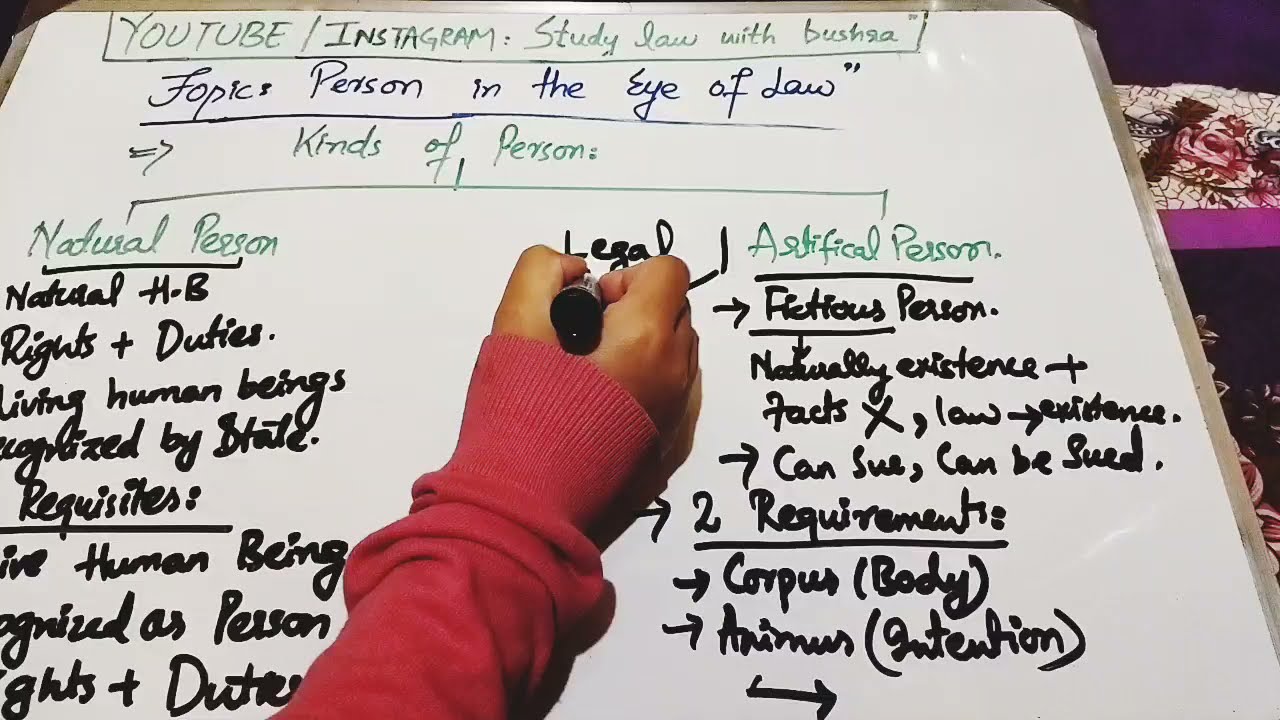 YOUTUBE / INSTAGRAM: Study law with bushra"
Topic: Person in the Eye of Law"
=> Kinds of Person:
Natural Person
Natural H.B
Rights + Duties.
living human beings
cognized by State.
Requisites:
ive Human Being
ognized as Person
ghts + Duties
Legal
Artifical Person.
→ Fictious Person.
Naturally existence +
Facts X, law → existence.
→ Can Sue, Can be Sued.
→ 2 Requirements:
→ Corpus (Body)
→ Animus (Intention)